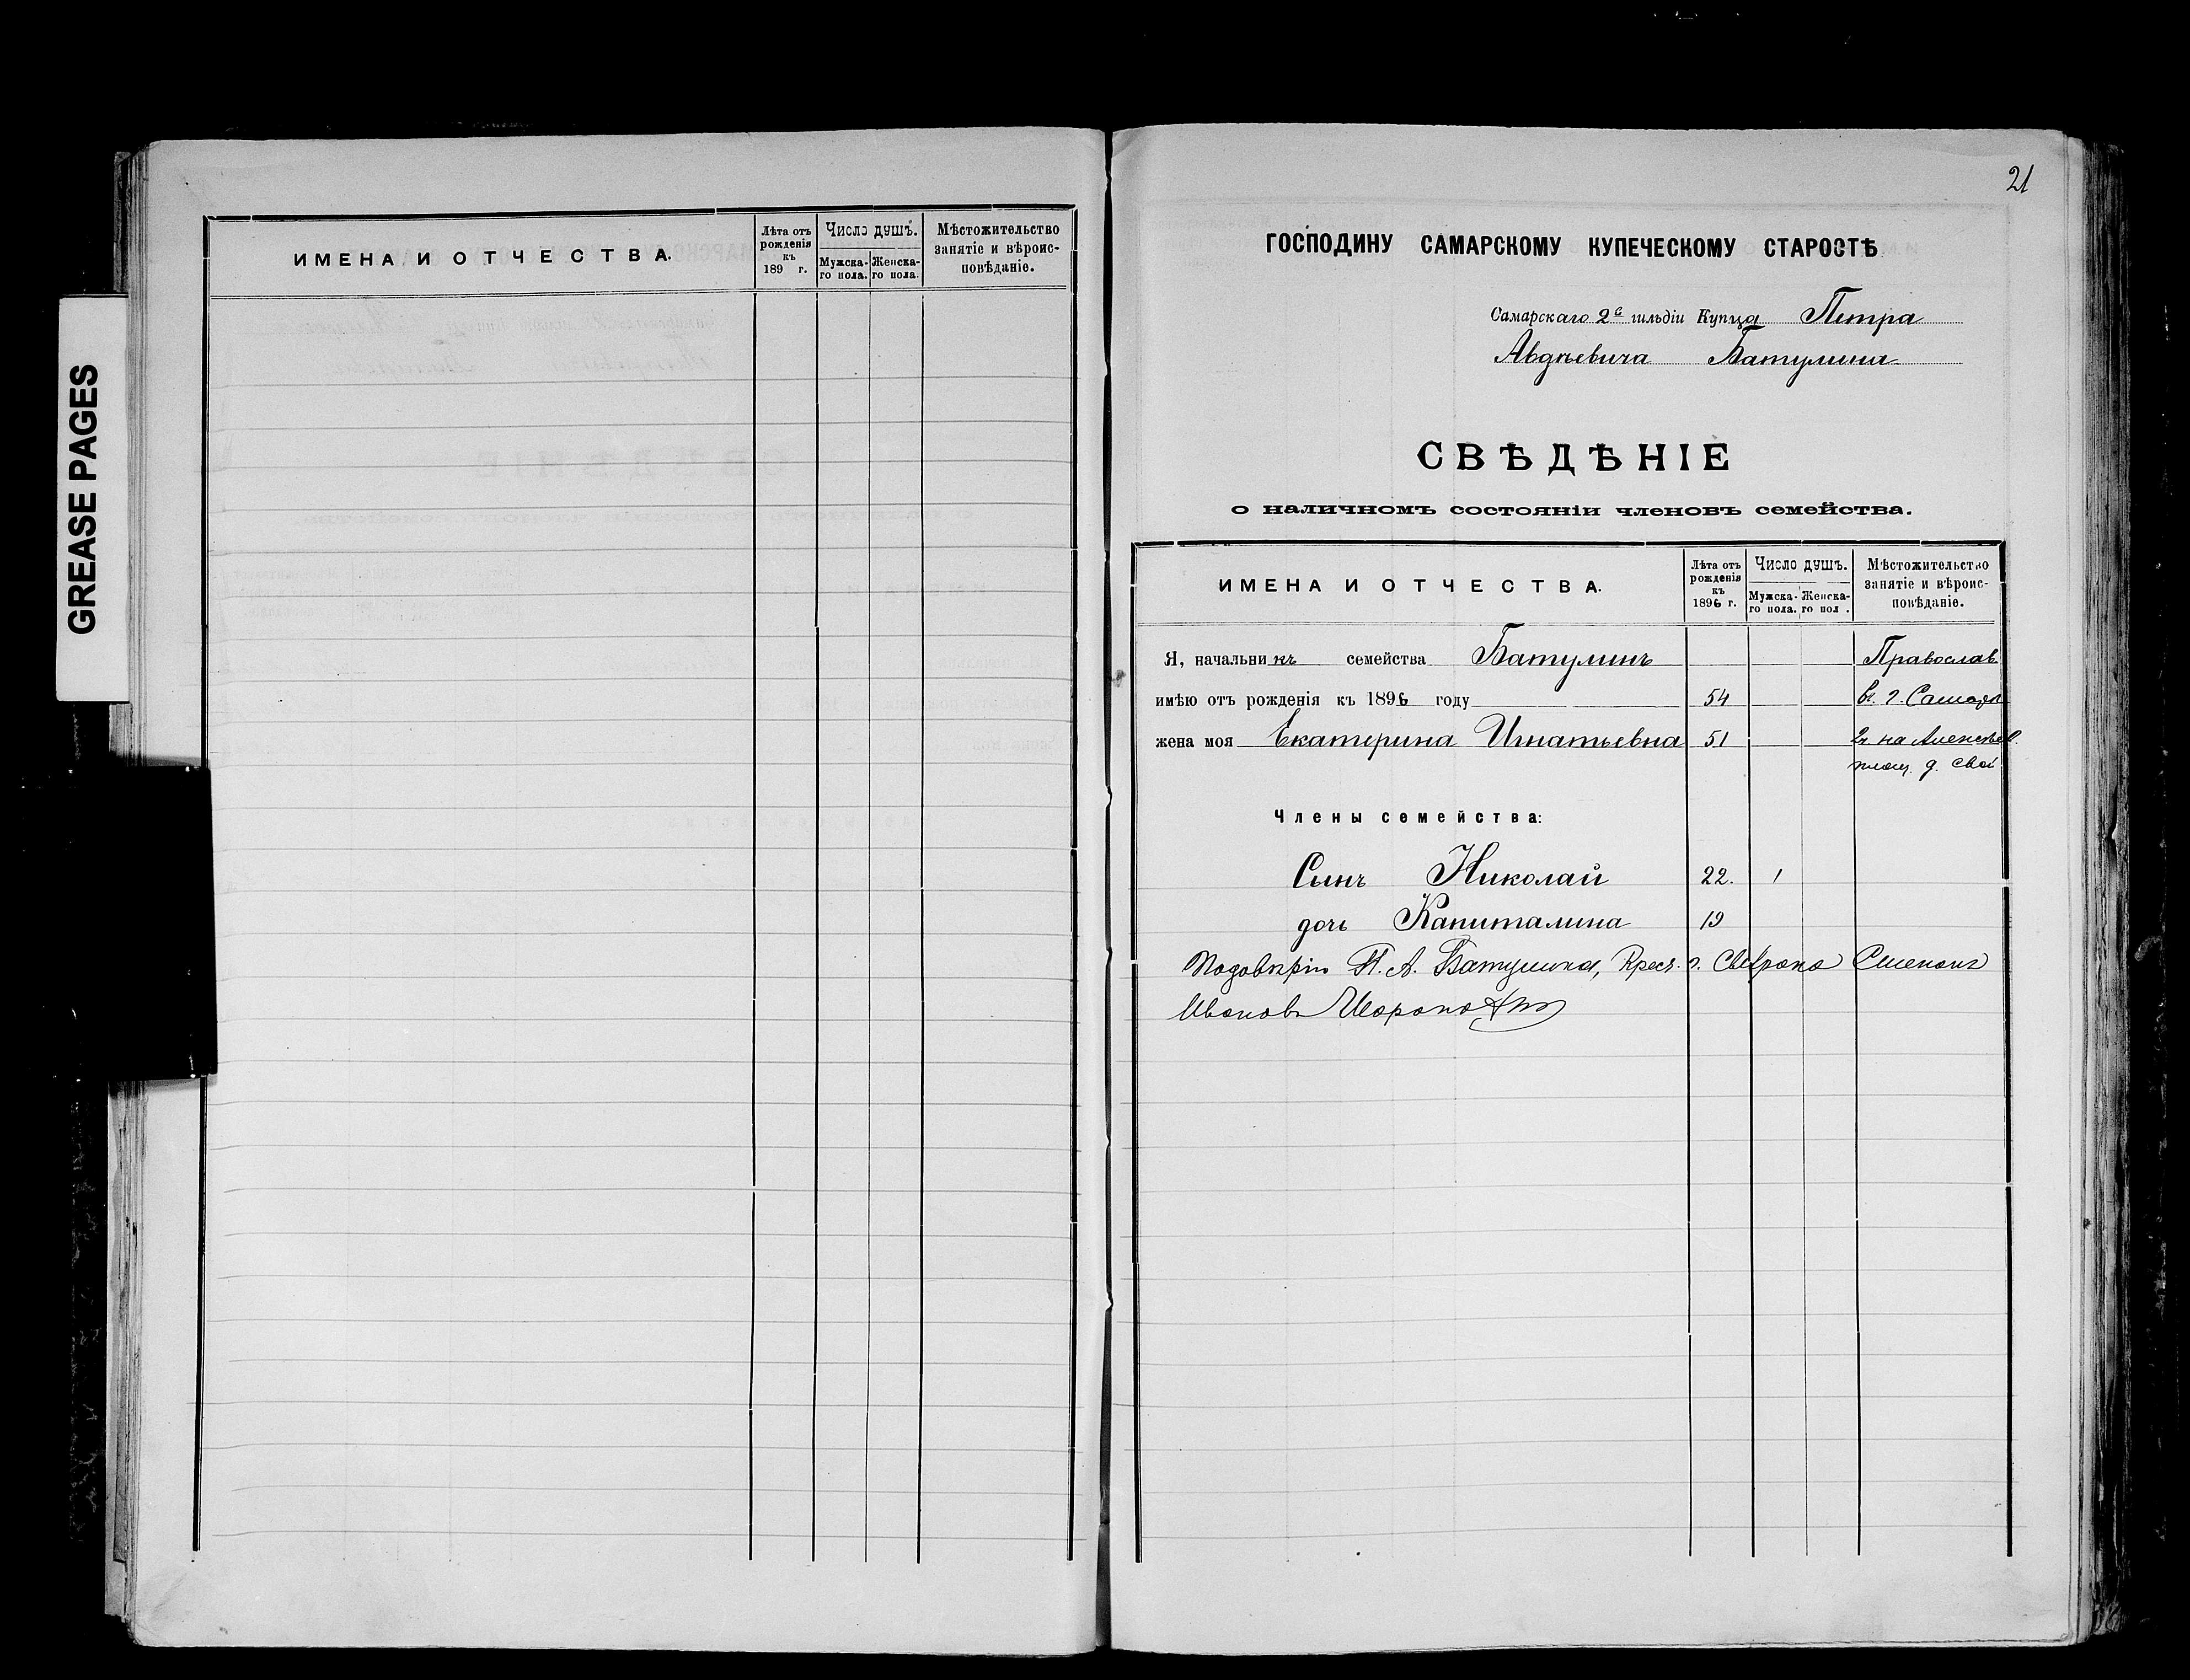 GREASE PAGES
ИМЕНА И ОТЧЕСТВА.
Лѣта отъ рожденія къ 189 г.
Число душъ.
Мужска-го пола.
Женска-го пола.
Мѣстожительство занятіе и вѣроис-повѣданіе.
21
ГОСПОДИНУ САМАРСКОМУ КУПЕЧЕСКОМУ СТАРОСТѢ
Самарскаго 2й гильдіи Купца Петра
Авдѣевича Батулина
СВѢДѢНІЕ
о наличномъ состояніи членовъ семейства.
ИМЕНА И ОТЧЕСТВА.
Лѣта отъ рожденія къ 1896 г.
Число душъ.
Мужска-го пола.
Женска-го пол .
Мѣстожительство занятіе и вѣроис-повѣданіе.
Я, начальникъ семейства Батулинъ Православ.
имѣю отъ рожденія къ 1896 году 54 въ г. Самарѣ
жена моя Екатерина Игнатьевна 51 2ч на Алексѣев.
площ. д. свой
Члены семейства:
Сынъ Николай 22. 1
дочь Капиталина 19
По довѣрію П. А. Батулина, Крест. Степанъ
Ивановъ